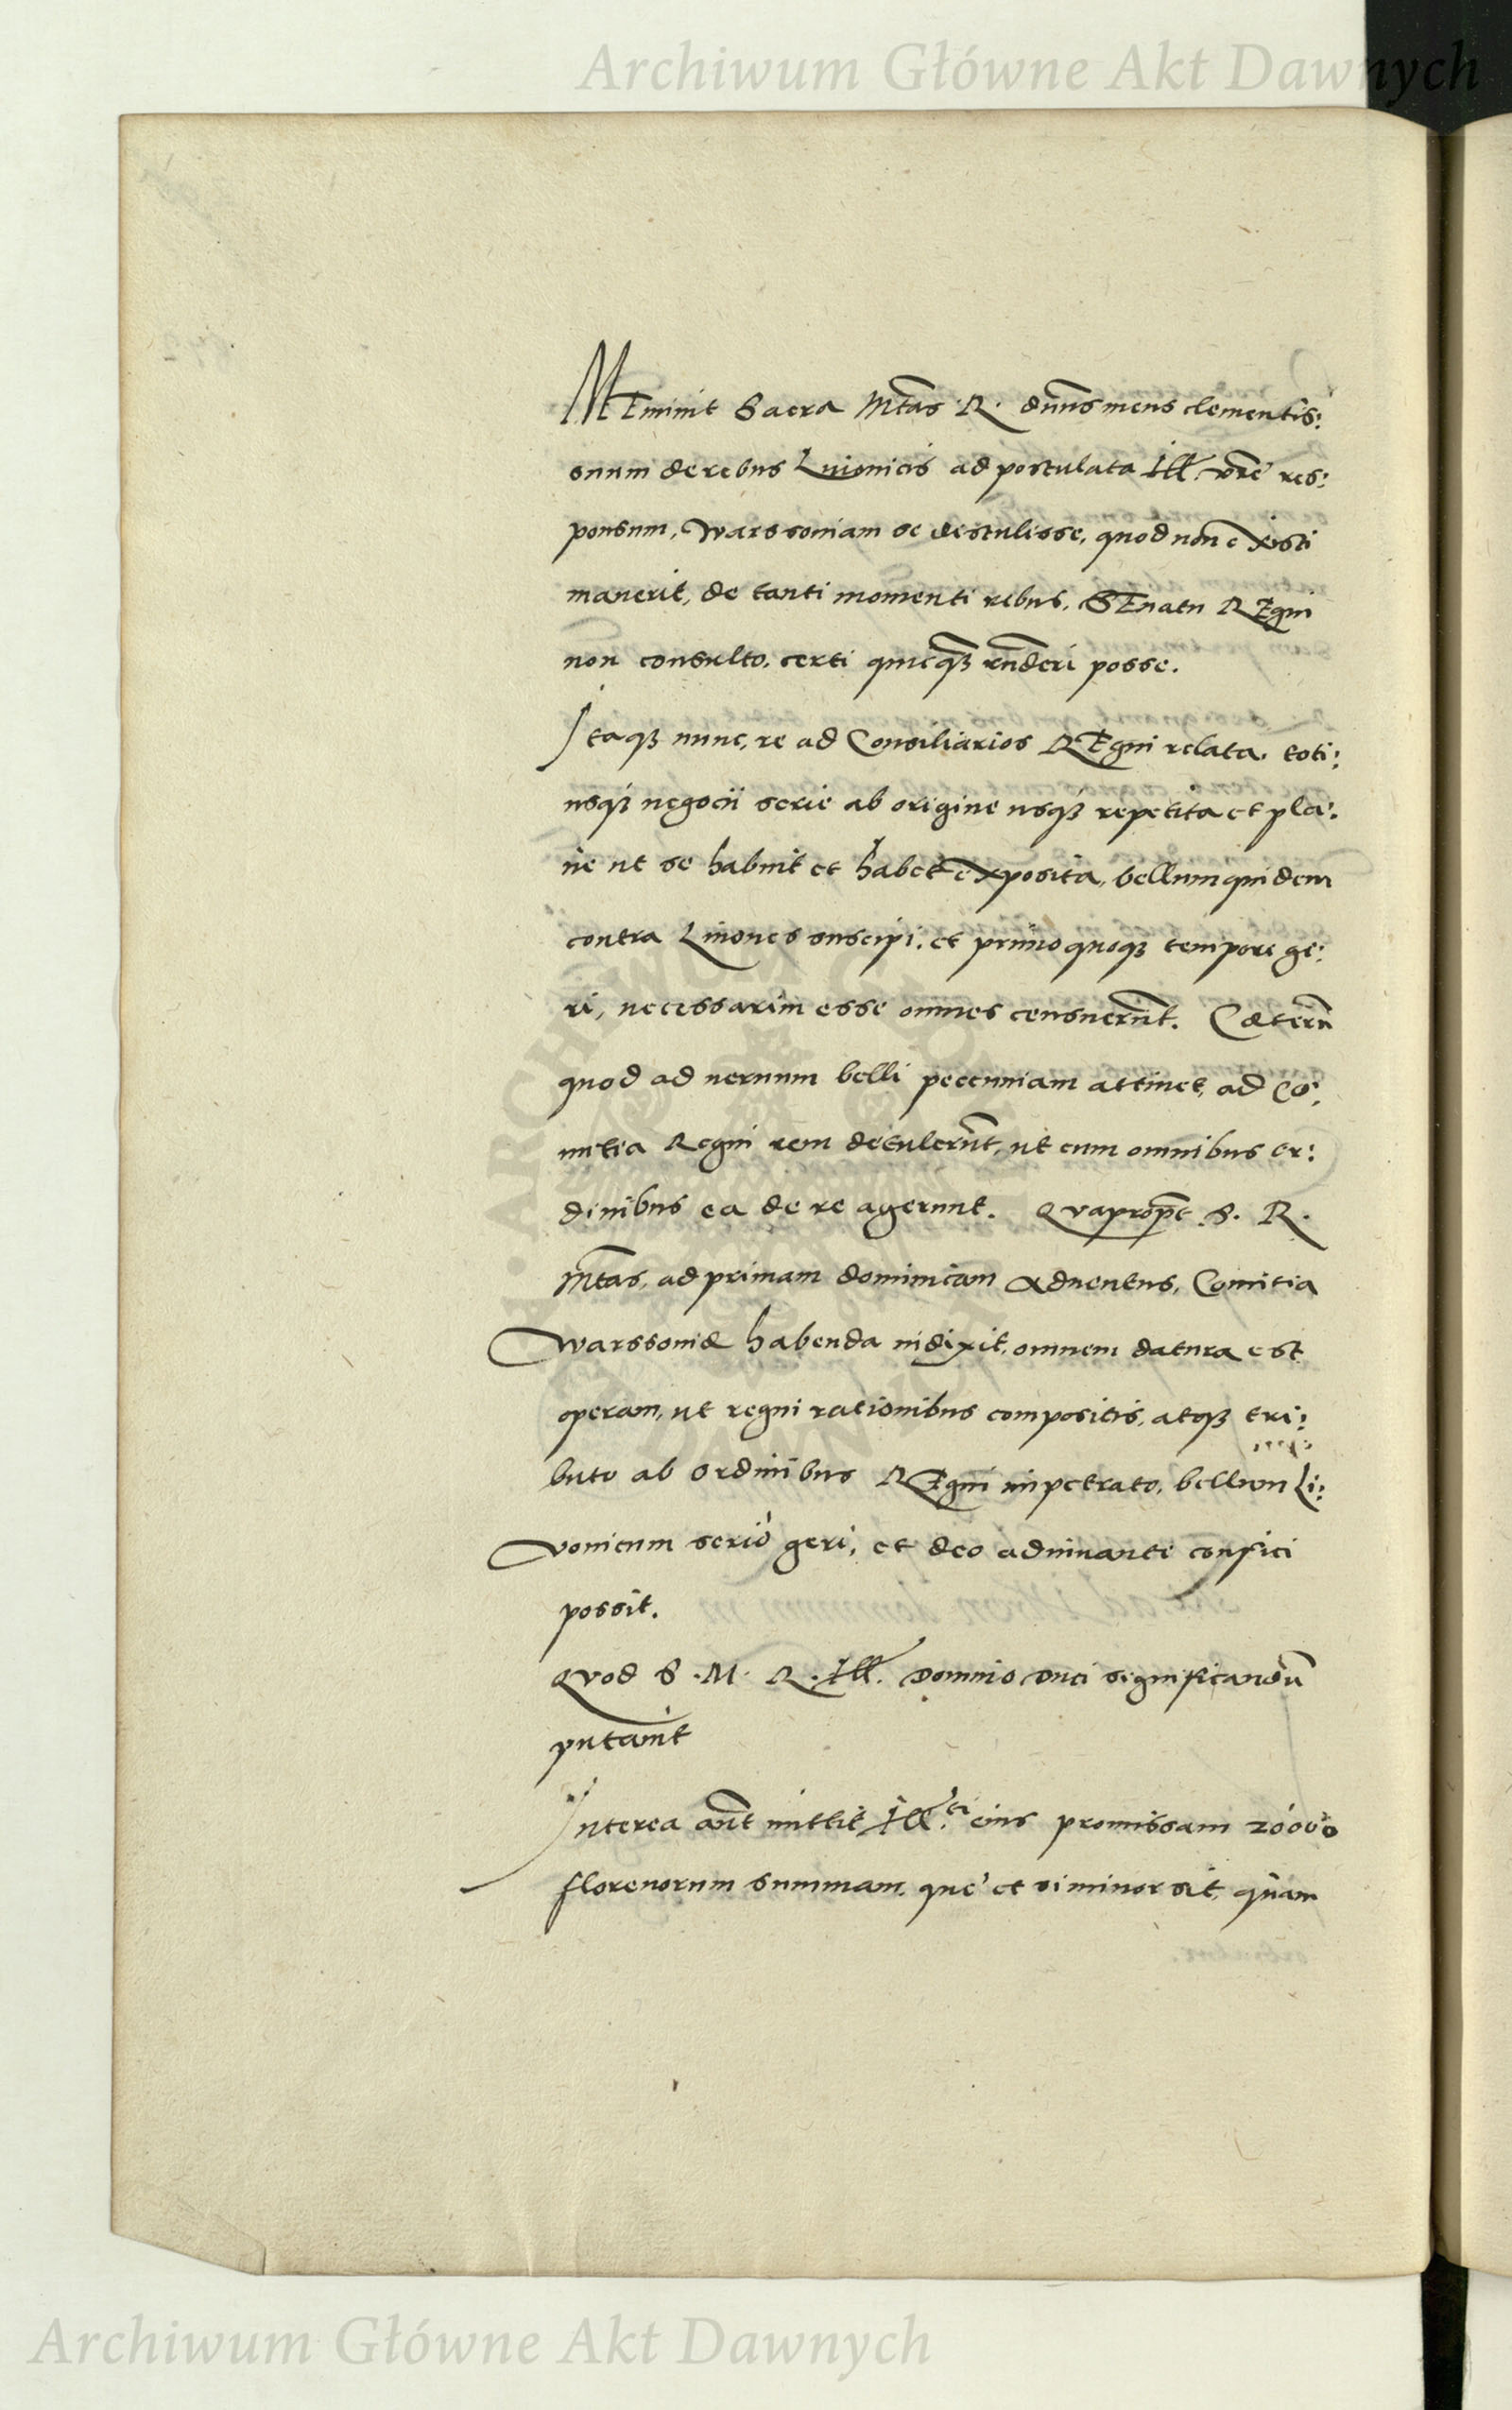 Archiwum Główne Akt Dawnych
MEminit Sacra Mtas R. dnūs meus clementis:
suum de rebus Liuonicis ad postulata Ill. vrē res:
ponsum, Warssouiam se destulisse, quod non existi
mauerit, de tanti momenti rebus, SEnatu REgni
non consulto, certi quicq̄ rn̄deri posse.
Itaq; nunc, re ad Consiliarios REgni relata, toti:
usq; negocii serie ab origine usq; repetita et pla:
nè ut se habuit et habet exposita, bellum quidem
contra Liuones suscipi, et primo quoq; tempore ge:
ri, necessariū esse omnes censuerūnt. Cæterū
quod ad neruum belli pecuniam attinet, ad Co:
mitia Regni rem detulerūnt, ut cum omnibus or:
dinibus ea de re agerent. Quaprop̄t S. R.
Mtas, ad primam dominicam Aduentus, Comitia
Warssouiæ habenda indixit, omnem datura est
operam, ut regni rationibus compositis, atq; tri:
buto ab ordinibus REgni impetrato, bellum Li:
vonicum seriò geri, et deo adiuuante confici
possit.
Quod S. M. R. Ill. Domino Duci significandū
putauit
Interea aūt mittit Ill.ti eius promissam 20000
florenorum summam, quē et si minor sit, quam
Archiwum Główne Akt Dawnych